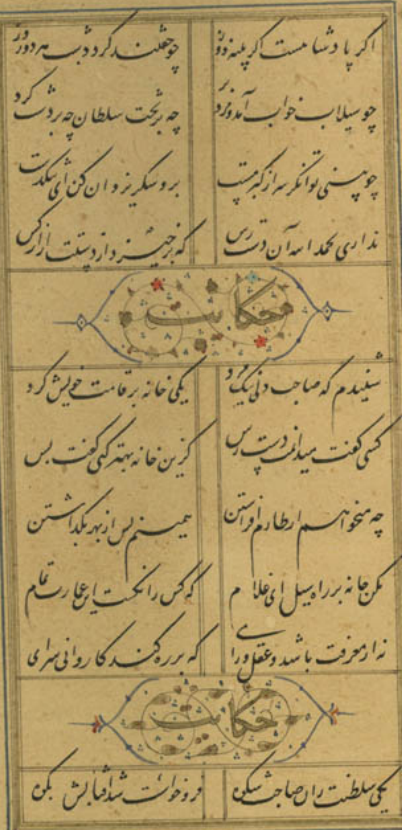 اگر پادشاهست اگر پینه دوز چو خفتند گردد شب هر دو روز
چو سیلاب خواب آمد و برد چه بر تخت سلطان چه بر دشت کرد
چو بینی توانگر سر از کبر مست برو شکر یزدان کن ای تنگدست
نداری بحمد الله آن دسترس که برخیزد از دستت آزار کس
حکایت
شنیدم که صاحب دلی نیکمرد یکی خانه بر قامت خویش کرد
کسی گفت میدانمت دسترس کزین خانه بهتر کنی گفت بس
چه میخواهم از طارم افراشتن همینم بس از بهر بگذاشتن
مکن خانه بر راه سیل ای غلام که کس را نگشت این عمارت تمام
نه از معرفت باشد و عقل و رای که بر ره کند کاروانی سرای
حکایت
یکی سلطنت ران صاحب شکوه فرو خواست شد آفتابش بکوه